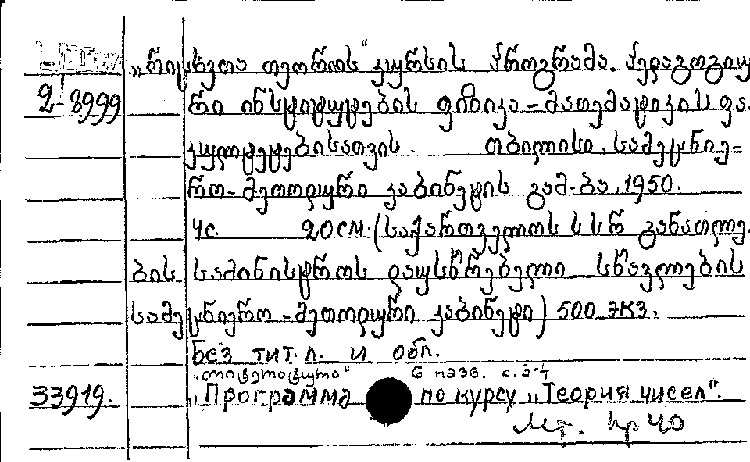 „რიცხვთა თეორიის" კურსის პროგრამა. პედაგოგიუ
2-3999 რი ინსტიტუტების ფიზიკა-მათემატიკის ფა-
კულტეტებისათვის. თბილისი, სამეცნიე-
რო-მეთოდური კაბინეტის გამ-ბა, 1950.
4с. 20см. (საქართველოს სსრ განათლე.
ბის სამინისტროს დაუსწრებელი სწავლების
სამეცნიერო-მეთოდური კაბინეტი) 500 экз.
без тит. л. и обл.
„ლიტერატურა" в назв. с. 3-4
33919. „Программа по курсу „Теория чисел".
40